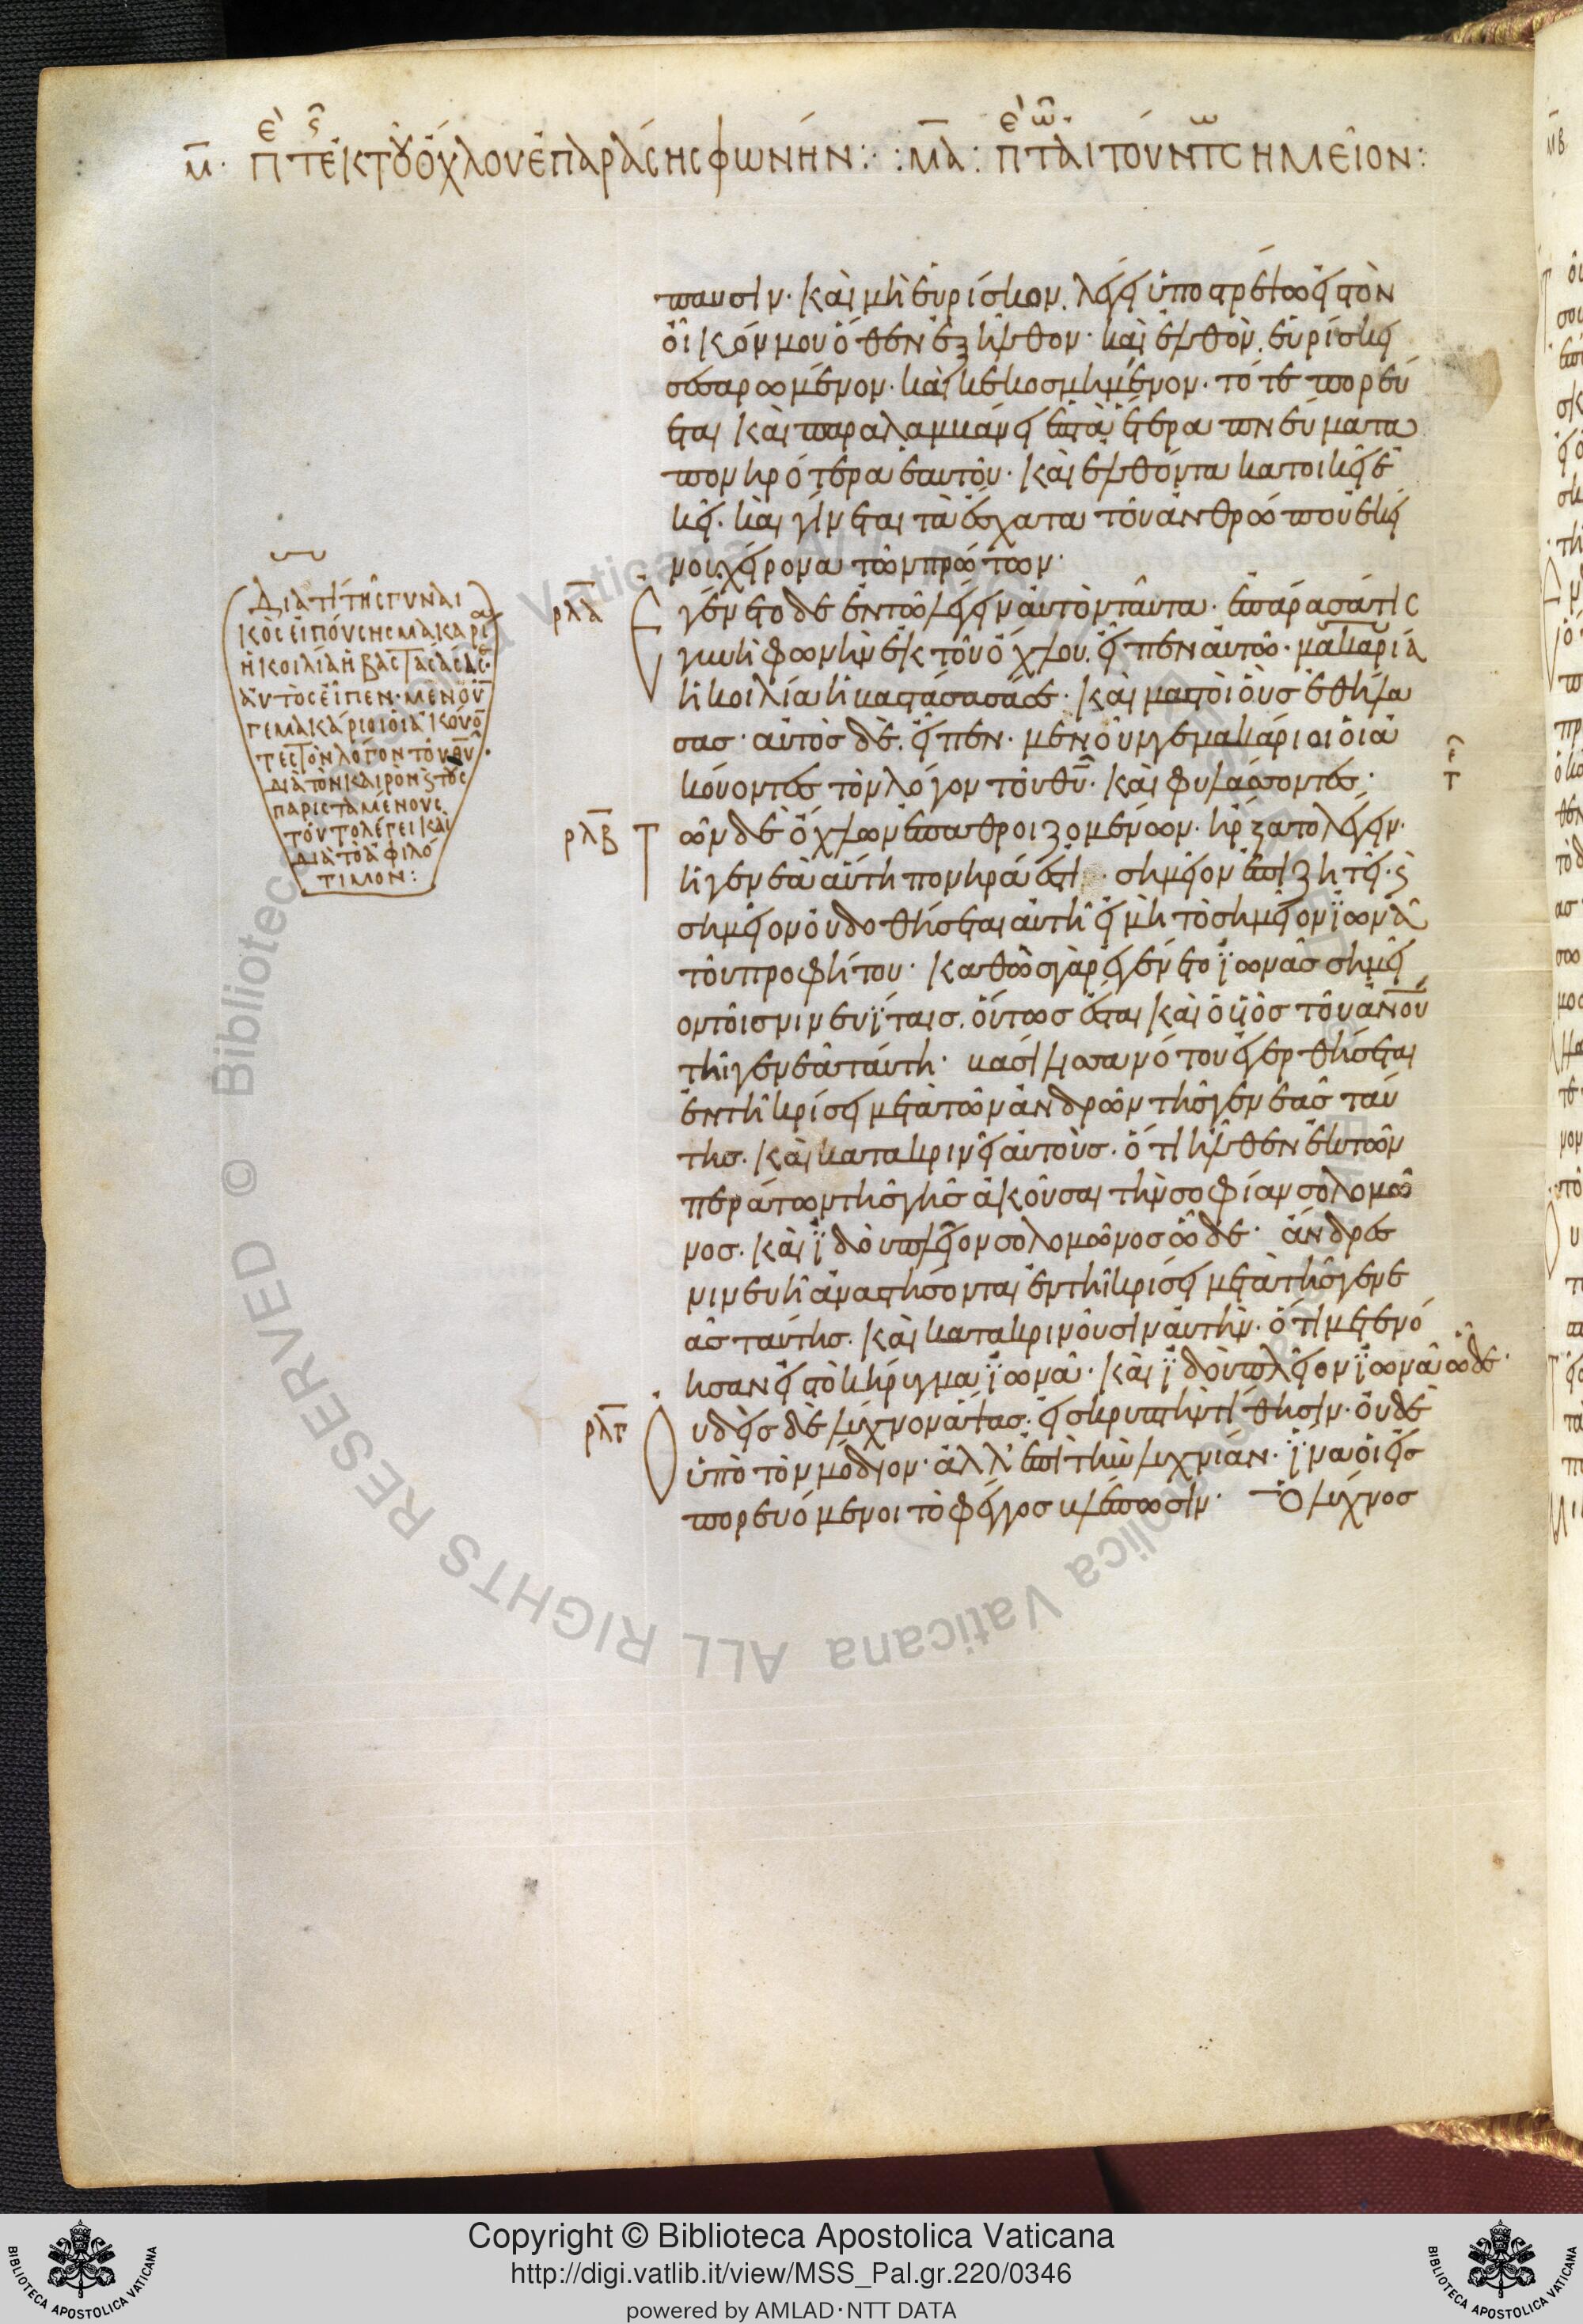 μ̅· πὲ τῆς ἐκ τοῦ ὄχλου ἐπαράσης φωνήν: :μ̅α̅: πὲ τῶν αἰτούντων σημεῖον:
παυσιν· καὶ μὴ εὑρίσκον. λέγει ὑποστρέψω εἰς τὸν
οἶκόν μου ὅθεν ἐξῆλθον· καὶ ἐλθὸν. εὑρίσκει
σεσαρωμένον· καὶ κεκοσμημένον· τότε πορεύ
εται καὶ παραλαμβάνει ἑπτὰ ἕτερα πνεύματα
πονηρότερα ἑαυτοῦ· καὶ ἐλθόντα κατοικεῖ ἐ
κεῖ. καὶ γίνεται τὰ ἔσχατα τοῦ ἀνθρώπου ἐκεί
νου χείρονα τῶν πρώτων·
Διατί τῆς γυναι
κὸς εἰπούσης μακαρία
ἡ κοιλία ἡ βαστάσασά σε·
αὐτὸς εἶπεν· μὲν οὖν
γε μακάριοι οἱ ἀκούον
τες τὸν λόγον τοῦ θ̅υ̅·
διὰ τὸν καιρὸν ϛ τοὺς
παρισταμένους
τοῦτο λέγει καὶ
διὰ τὸ ἀφιλό
τιμον:
ρ̅λ̅α̅ Ἐγένετο δὲ ἐν τῶ λέγειν αὐτὸν ταῦτα· ἐπάρασά τις
γυνὴ φωνὴν ἐκ τοῦ ὄχλου. εἶπεν αὐτῶ· μακαρία
ἡ κοιλία ἡ βαστάσασά σε· καὶ μαστοὶ οὓς ἐθήλα
σας· αὐτὸς δὲ. εἶπεν· μὲν οὖν γε μακάριοι οἱ ἀ
κούοντες τὸν λόγον τοῦ θ̅υ̅· καὶ φυλάσσοντες·
ρ̅λ̅β̅ Τῶν δὲ ὄχλων ἐπαθροιζομένων· ἤρξατο λέγειν·
ἡ γενεὰ αὕτη πονηρά ἐστι· σημεῖον ἐπιζητεῖ· ϛ
σημεῖον οὐ δοθήσεται αὐτῆ εἰ μὴ τὸ σημεῖον ϊωνᾶ
τοῦ προφήτου· καθὼς γὰρ ἐγένετο ϊωνᾶς σημεῖ
ον τοῖς νινευΐταις. οὕτως ἔσται καὶ ὁ υἱὸς τοῦ α̅ν̅ο̅υ̅
τῆ γενεᾶ ταύτη· βασίλισσα νότου ἐγερθήσεται
ἐν τῆ κρίσει μετὰ τῶν ἀνδρῶν τῆς γενεᾶς ταύ
της. καὶ κατακρινεῖ αὐτοὺς· ὅτι ἦλθεν ἐκ τῶν
περάτων τῆς γῆς ἀκοῦσαι τὴν σοφίαν σολομῶ
νος. καὶ ϊδοὺ πλεῖον σολομῶνος ὧδε· ἄνδρες
νινευῆ ἀναστήσονται ἐν τῆ κρίσει μετὰ τῆς γενε
ᾶς ταύτης. καὶ κατακρινοῦσιν αὐτὴν· ὅτι μετενό
ησαν εἰς τὸ κήρυγμα ϊωνᾶ· καὶ ϊδοὺ πλεῖον ϊωνᾶ ὧδε·
ρ̅λ̅γ̅ Οὐδεὶς δὲ λύχνον ἅψας. εἰς κρυπτὴν τίθησιν· οὐδὲ
ὑπὸ τὸν μόδιον· ἀλλ' ἐπὶ τὴν λυχνίαν· ϊνα οἱ εἰσ
πορευόμενοι τὸ φέγγος βλέπωσιν· Ὁ λύχνος
Copyright © Biblioteca Apostolica Vaticana
http://digi.vatlib.it/view/MSS_Pal.gr.220/0346
powered by AMLAD·NTT DATA